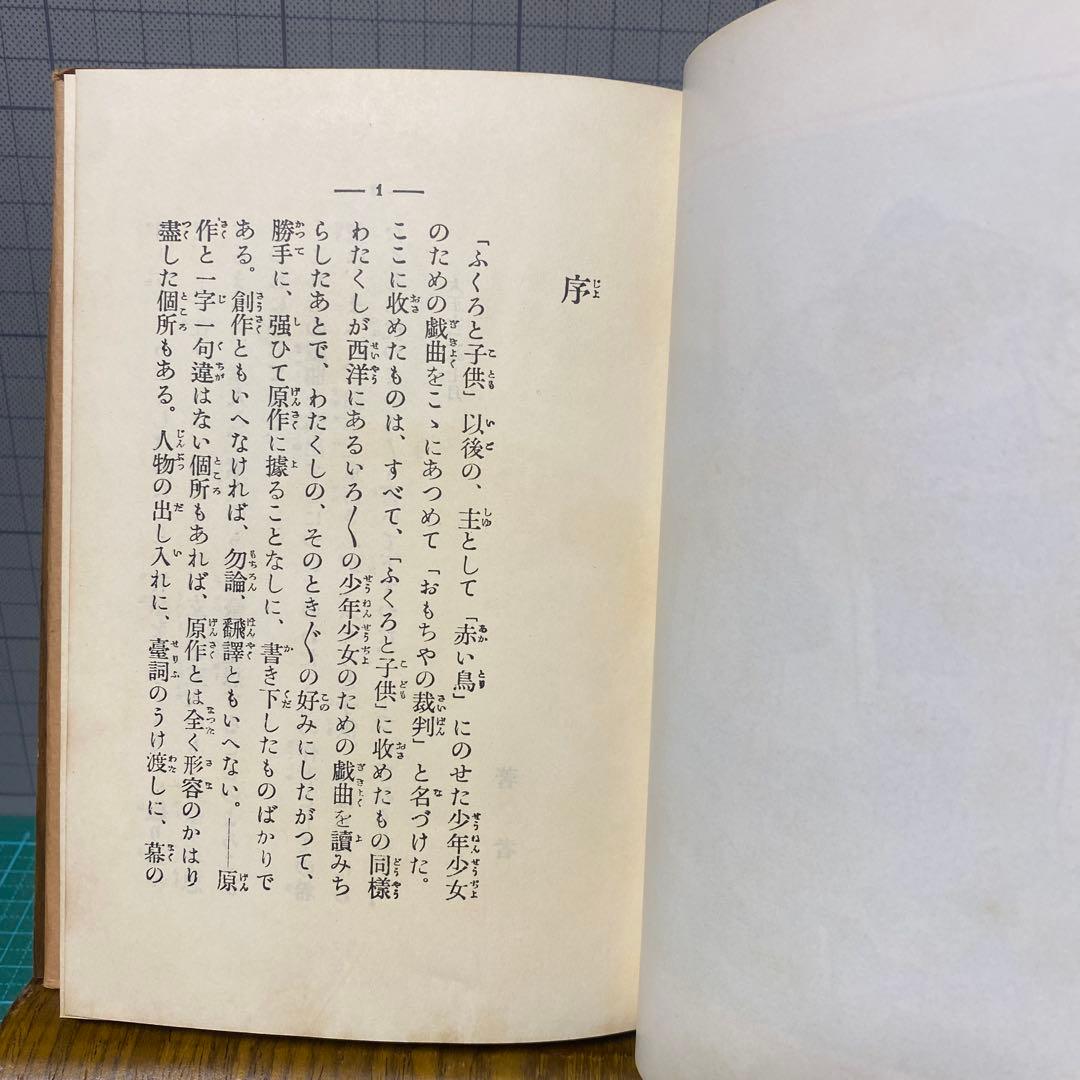 — 1 —
序
「ふくろと子供」以後の、主として「赤い鳥」にのせた少年少女
のための戯曲をこゝにあつめて「おもちやの裁判」と名づけた。
ここに收めたものは、すべて、「ふくろと子供」に收めたもの同樣
わたくしが西洋にあるいろ〳〵の少年少女のための戯曲を讀みち
らしたあとで、わたくしの、そのとき〴〵の好みにしたがつて、
勝手に、强ひて原作に據ることなしに、書き下したものばかりで
ある。創作ともいへなければ、勿論、飜譯ともいへない。――原
作と一字一句違はない個所もあれば、原作とは全く形容のかはり
盡した個所もある。人物の出し入れに、臺詞のうけ渡しに、幕の